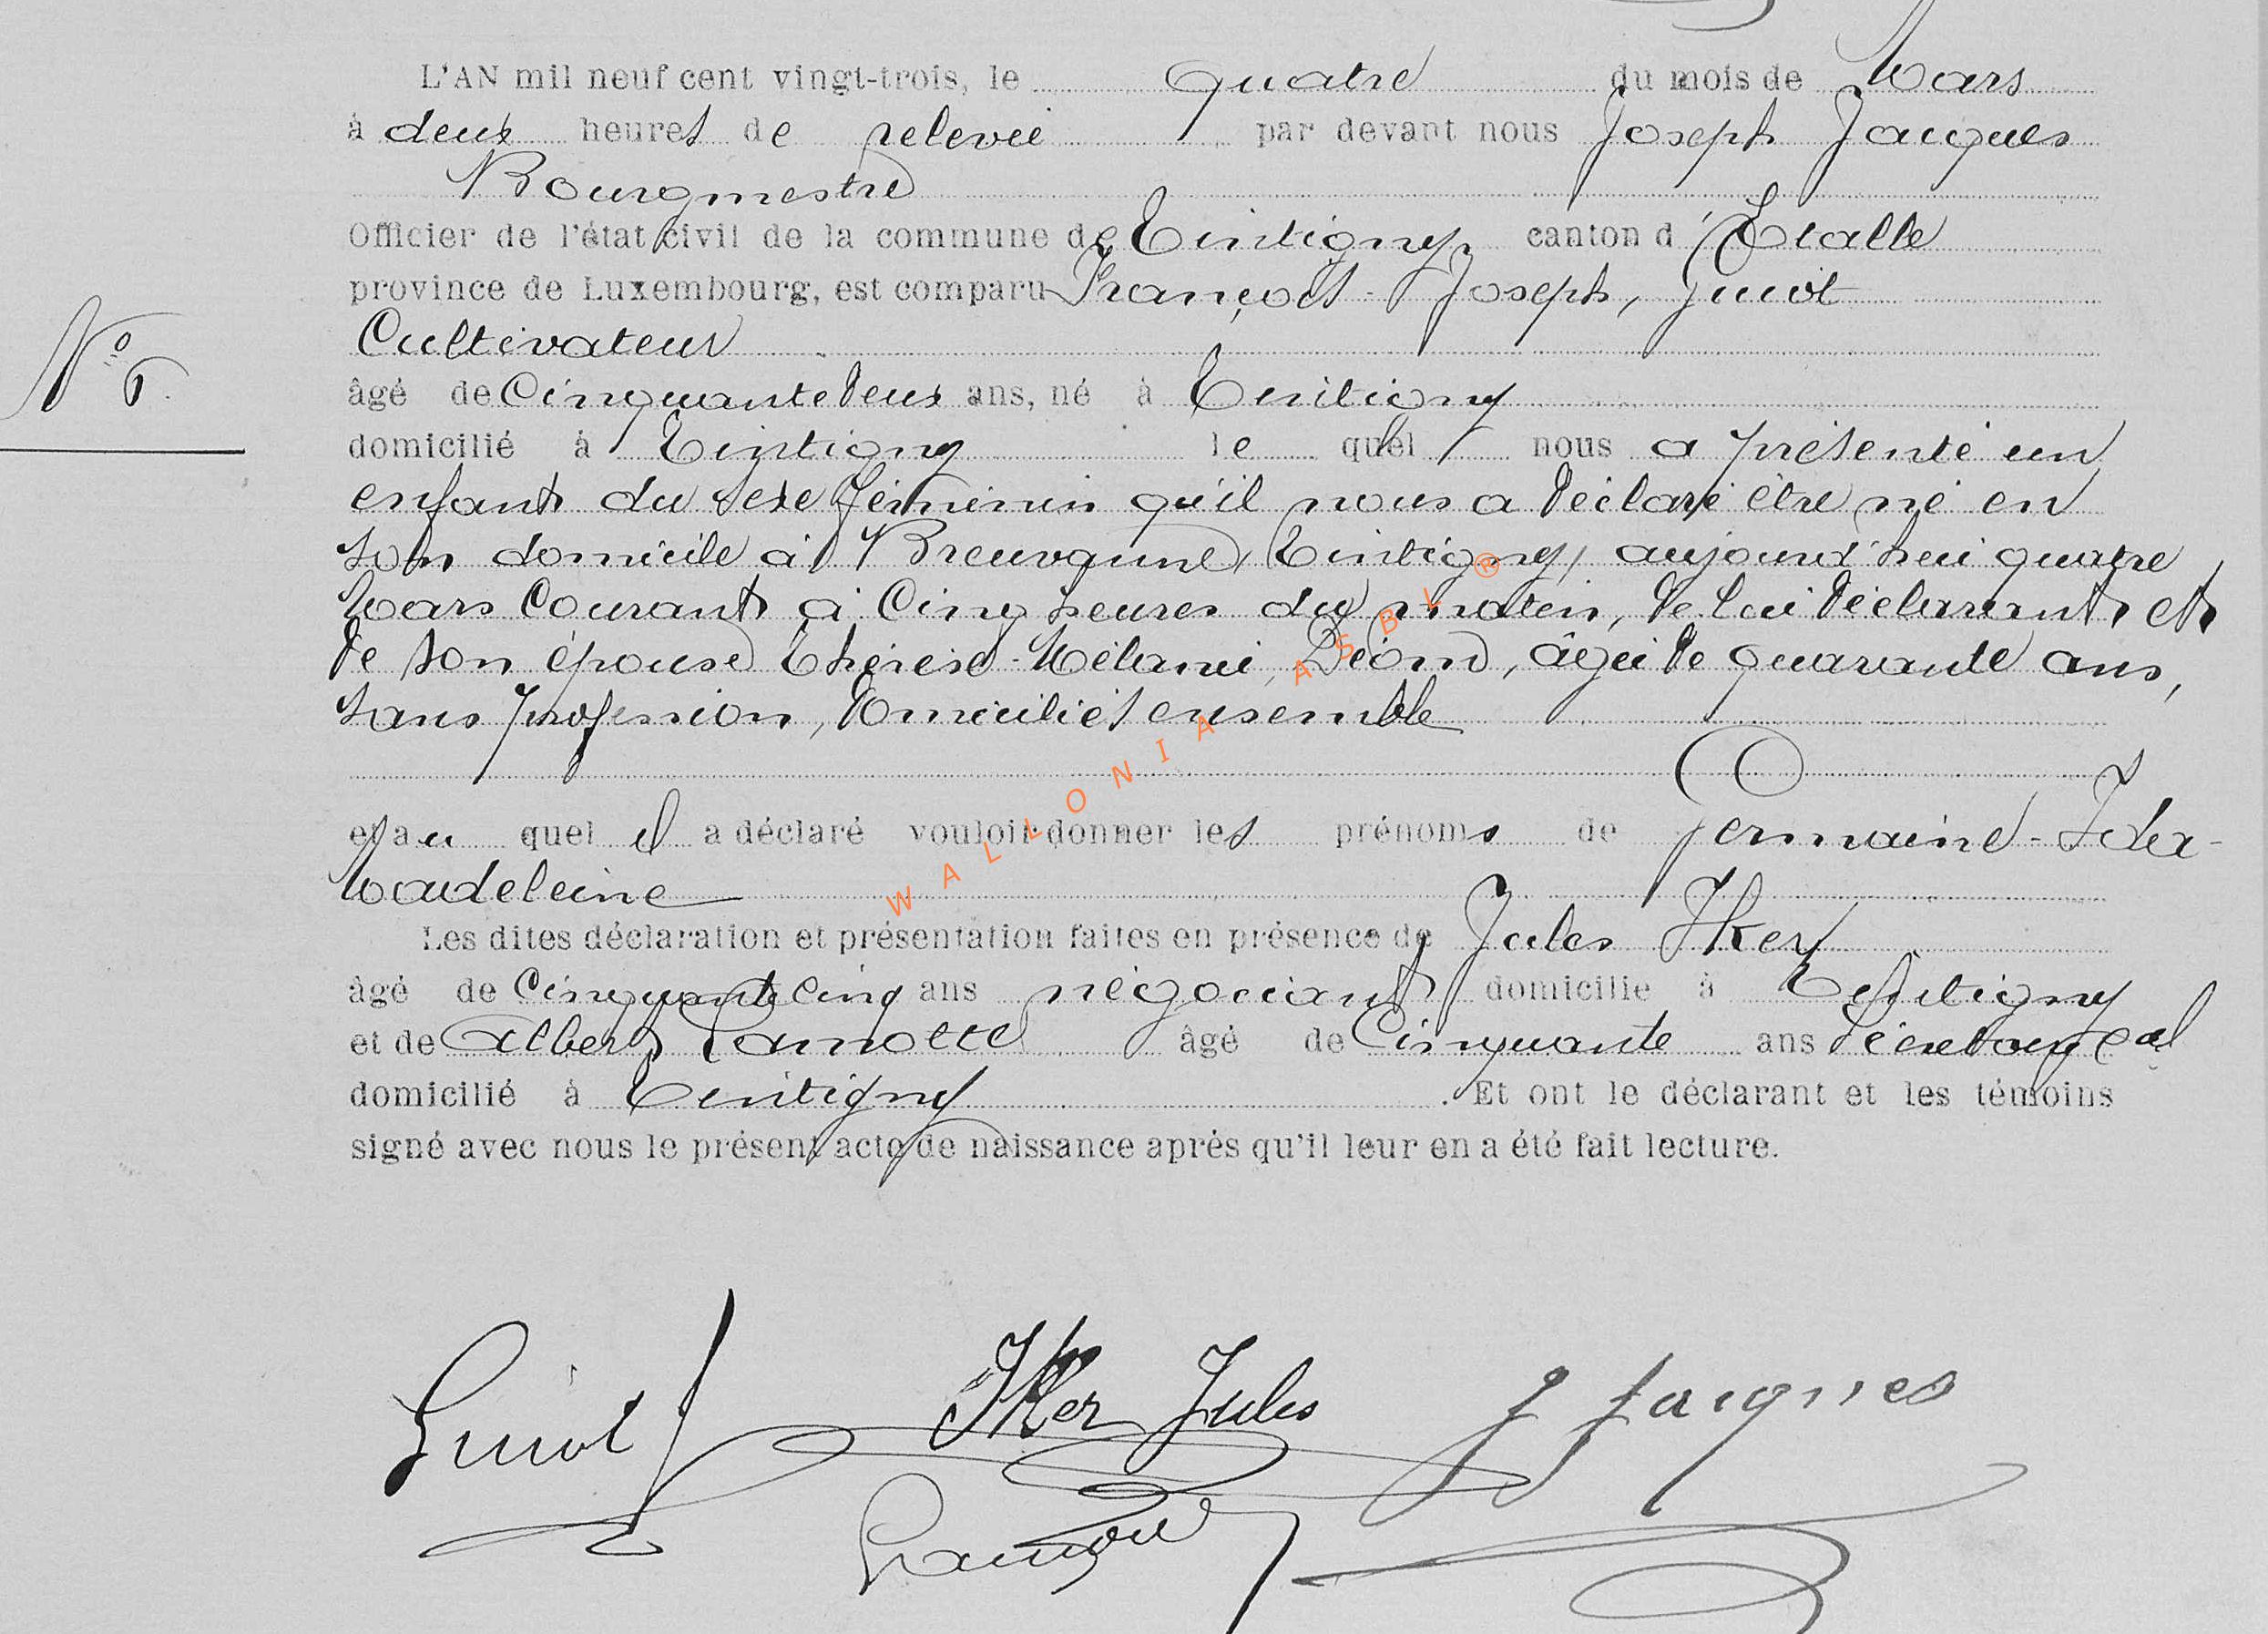 L'AN mil neuf cent vingt-trois, le quatre du mois de Mars
à deux heures de relevée par devant nous Joseph Jacques
Bourgmestre
Officier de l'état civil de la commune de Tintigny canton d'Etalle
province de Luxembourg, est comparu François-Joseph, Guiot
Cultivateur
N° 6.
âgé de Cinquante deux ans, né à Tintigny
domicilié à Tintigny le quel nous a présenté un
enfant du sexe féminin qu'il nous a déclaré être né en
son domicile à Breuvanne, Tintigny, aujourd'hui quatre
Mars Courant à Cinq heures du matin, de lui déclarant et
de son épouse Thérèse-Mélanie, Déom, âgée de quarante ans,
sans profession, domiciliés ensemble
et au quel il a déclaré vouloir donner les prénoms de Germaine-Ida-
Madeleine
Les dites déclaration et présentation faites en présence de Jules Iker
âgé de Cinquante cinq ans négociant domicilié à Tintigny
et de Albert Lamotte âgé de Cinquante ans Secret comcal
domicilié à Tintigny. Et ont le déclarant et les témoins
signé avec nous le présent acte de naissance après qu'il leur en a été fait lecture.
Guiot F
IKer Jules
J Jacques
Lamotte
WALLONIA ASBL ®